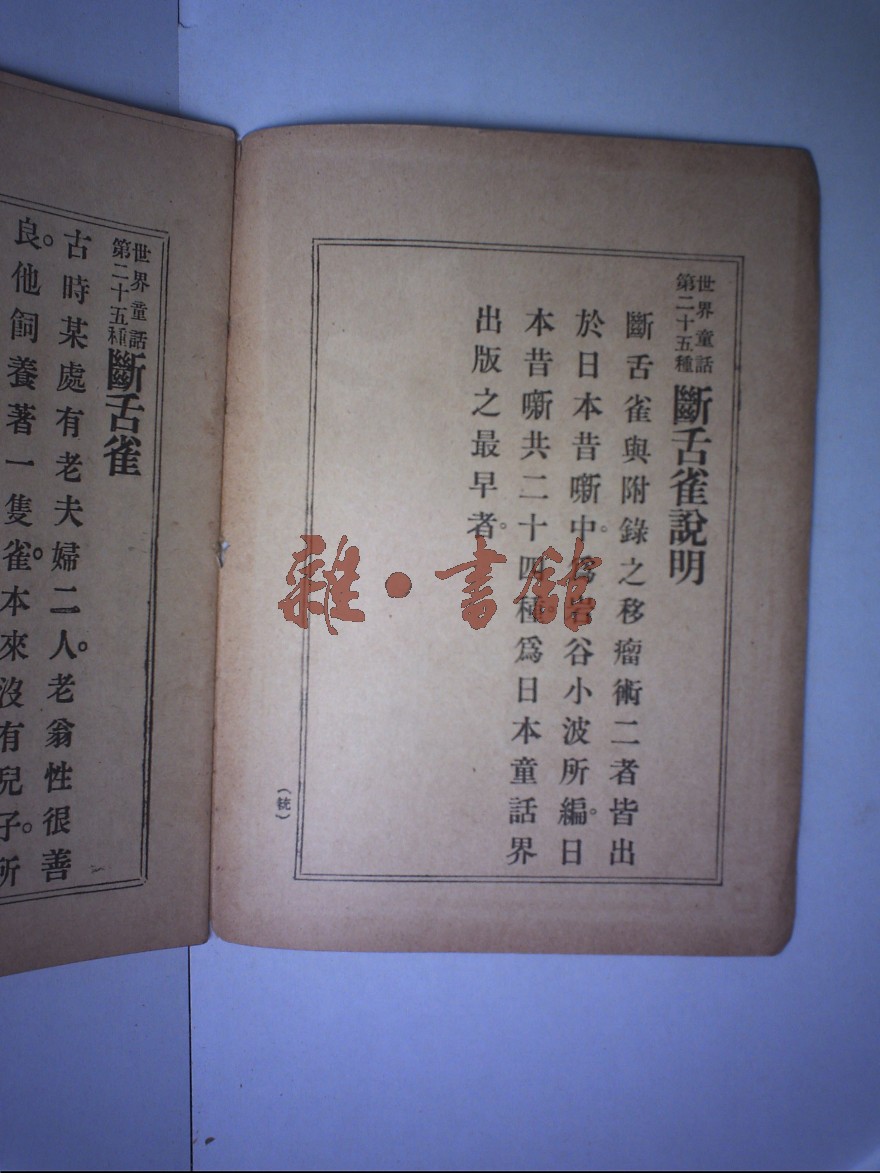 世界童話
第二十五種
斷舌雀說明
斷舌雀與附錄之移瘤術二者皆出
於日本昔噺中。爲岩谷小波所編。日
本昔噺共二十四種。爲日本童話界
出版之最早者。
世界童話
第二十五種
斷舌雀
古時某處有老夫婦二人。老翁性很善
良。他飼養著一隻雀。本來沒有兒子。所
雜·書館